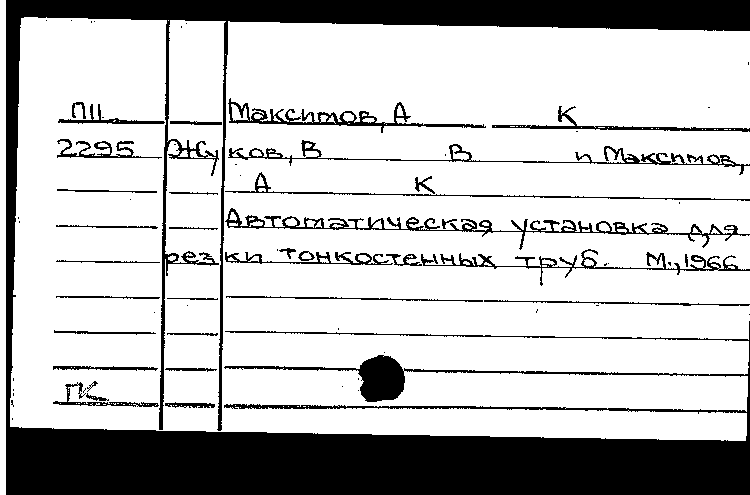 П11 Максимов, А К
2295 Жуков, В В и Максимов,
А К
Автоматическая установка для
резки тонкостенных труб. М., 1966
ГК